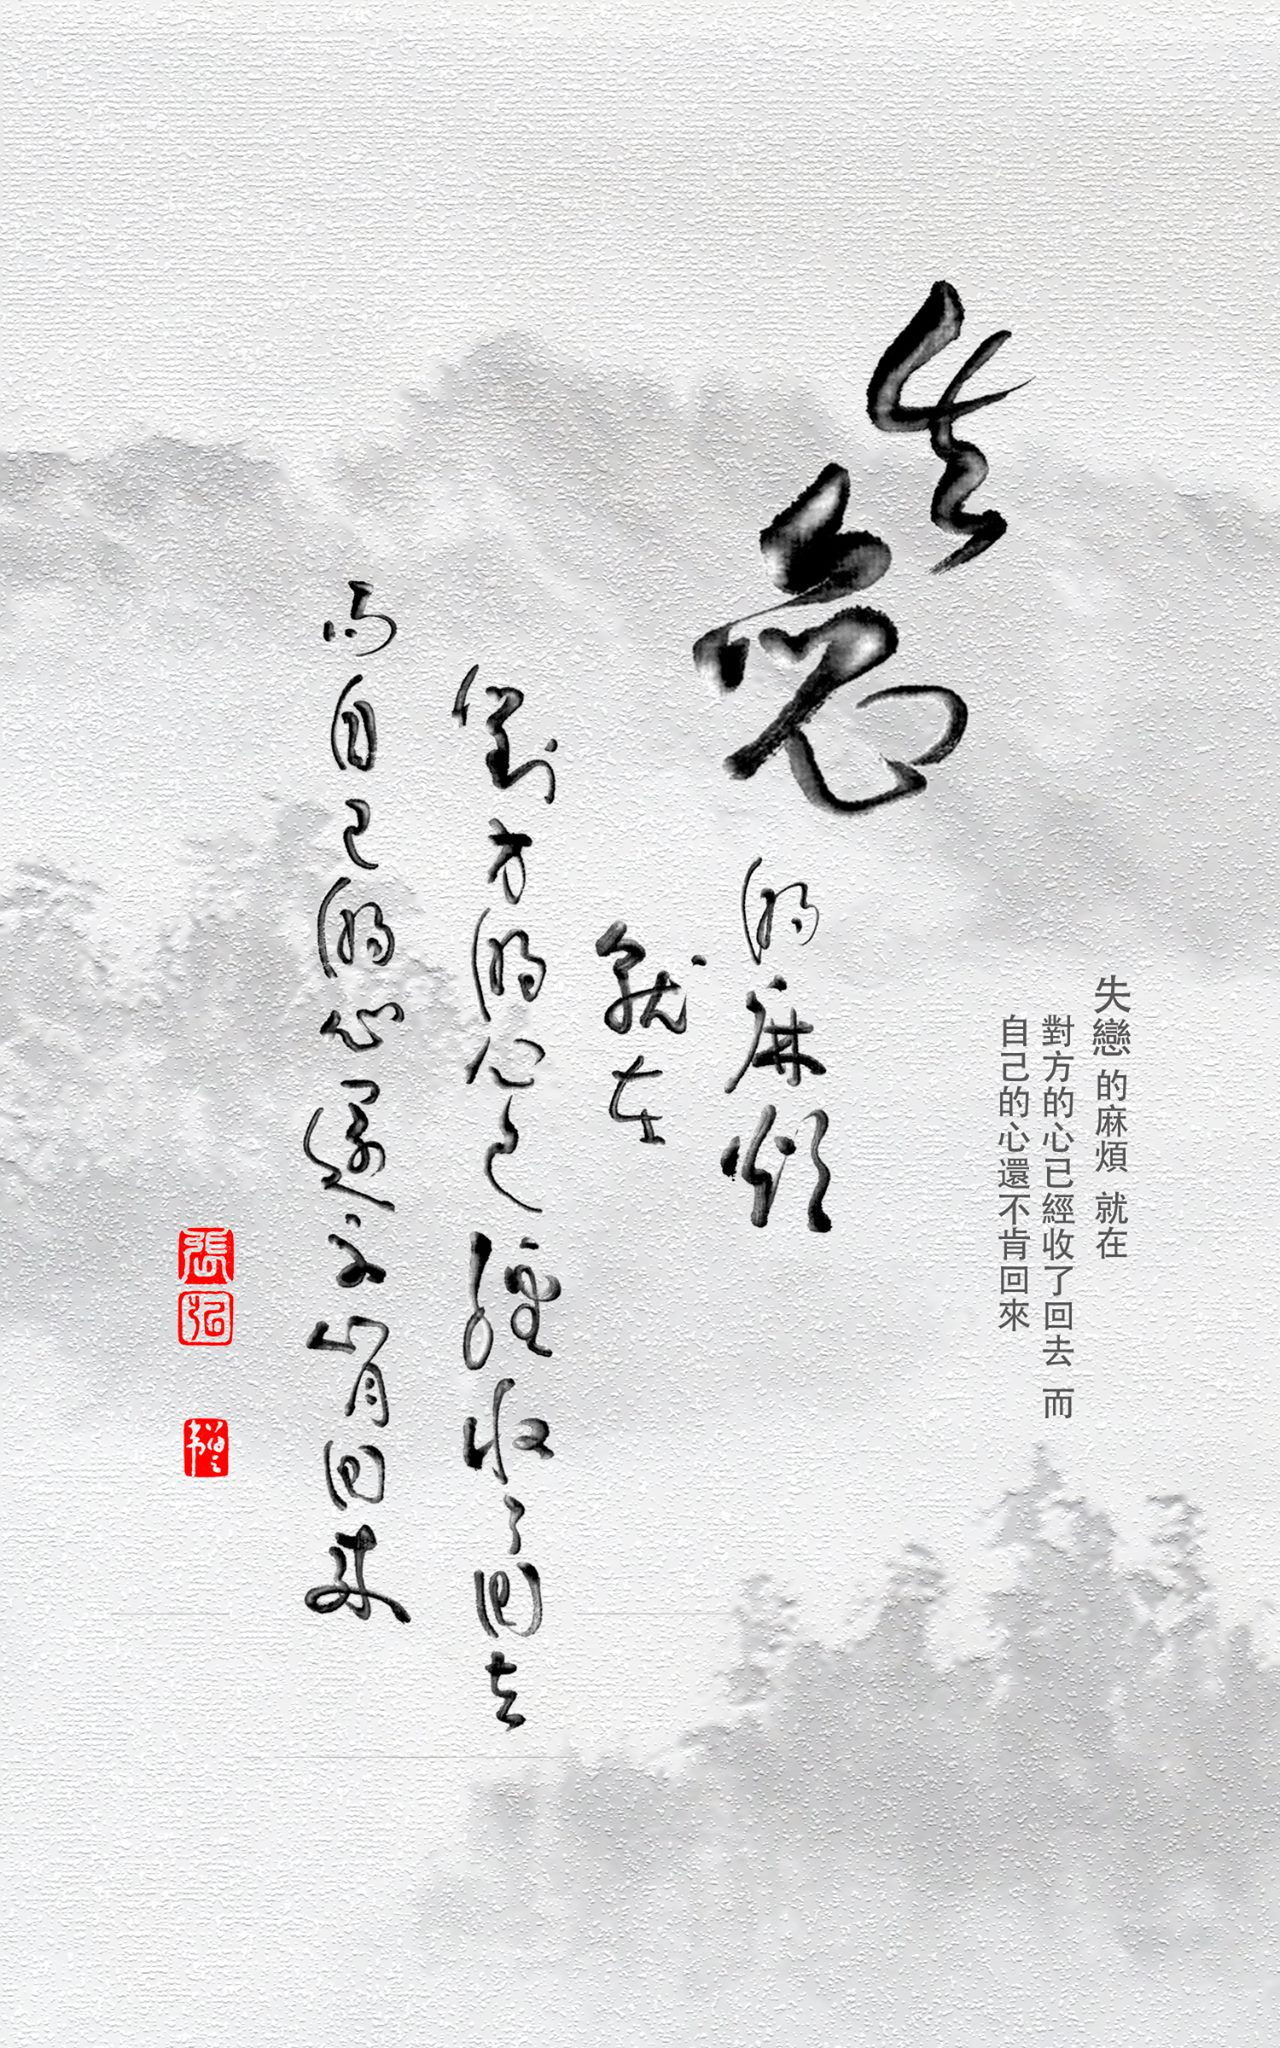 失戀 的麻煩 就在
對方的心已經收了回去 而
自己的心還不肯回來
失戀
的麻煩
就在
對方的心已經收了回去
而自己的心還不肯回來
張